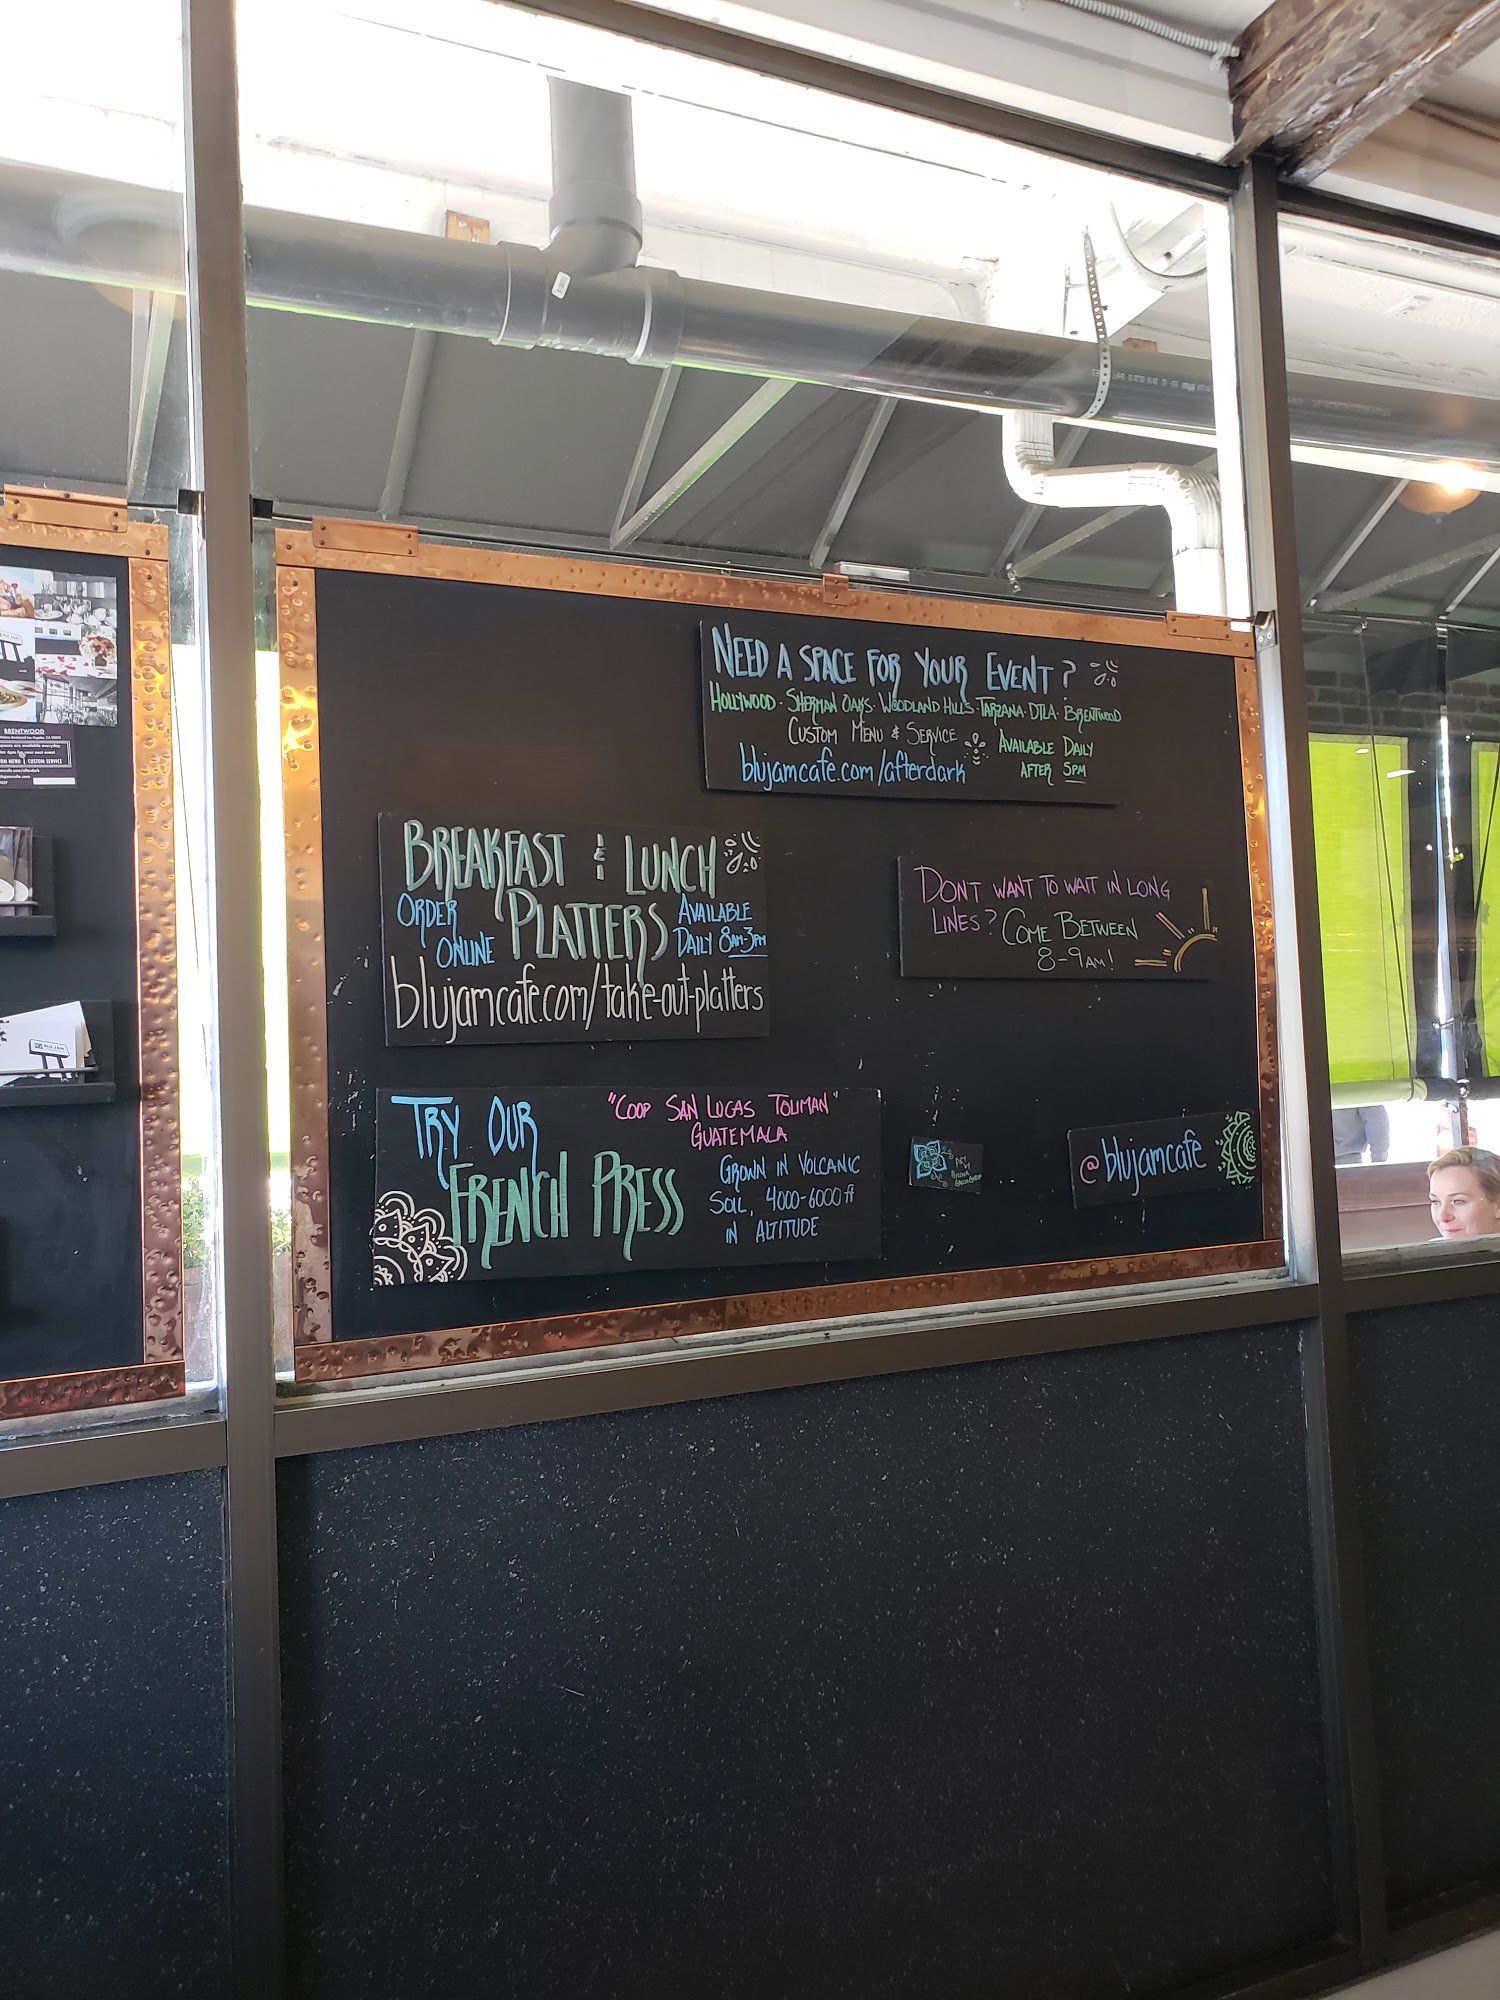 NEED A SPACE FOR YOUR EVENT?
HOLLYWOOD · SHERMAN OAKS · WOODLAND HILLS · TARZANA · DTLA · BRENTWOOD
CUSTOM MENU & SERVICE
blujamcafe.com/afterdark
AVAILABLE DAILY
AFTER 5PM
BREAKFAST & LUNCH
PLATTERS
ORDER
ONLINE
AVAILABLE
DAILY 8AM-3PM
blujamcafe.com/take-out-platters
DONT WANT TO WAIT IN LONG
LINES? COME BETWEEN
8-9AM!
TRY OUR
FRENCH PRESS
"COOP SAN LUCAS TOLIMAN"
GUATEMALA
GROWN IN VOLCANIC
SOIL, 4000-6000 ft
IN ALTITUDE
@blujamcafe
BRENTWOOD
CUSTOM SERVICE
BLU JAM